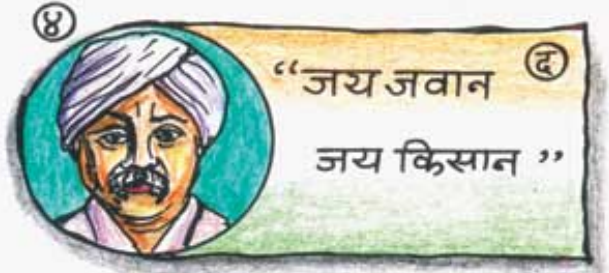 ४
द
“जय जवान
जय किसान ”